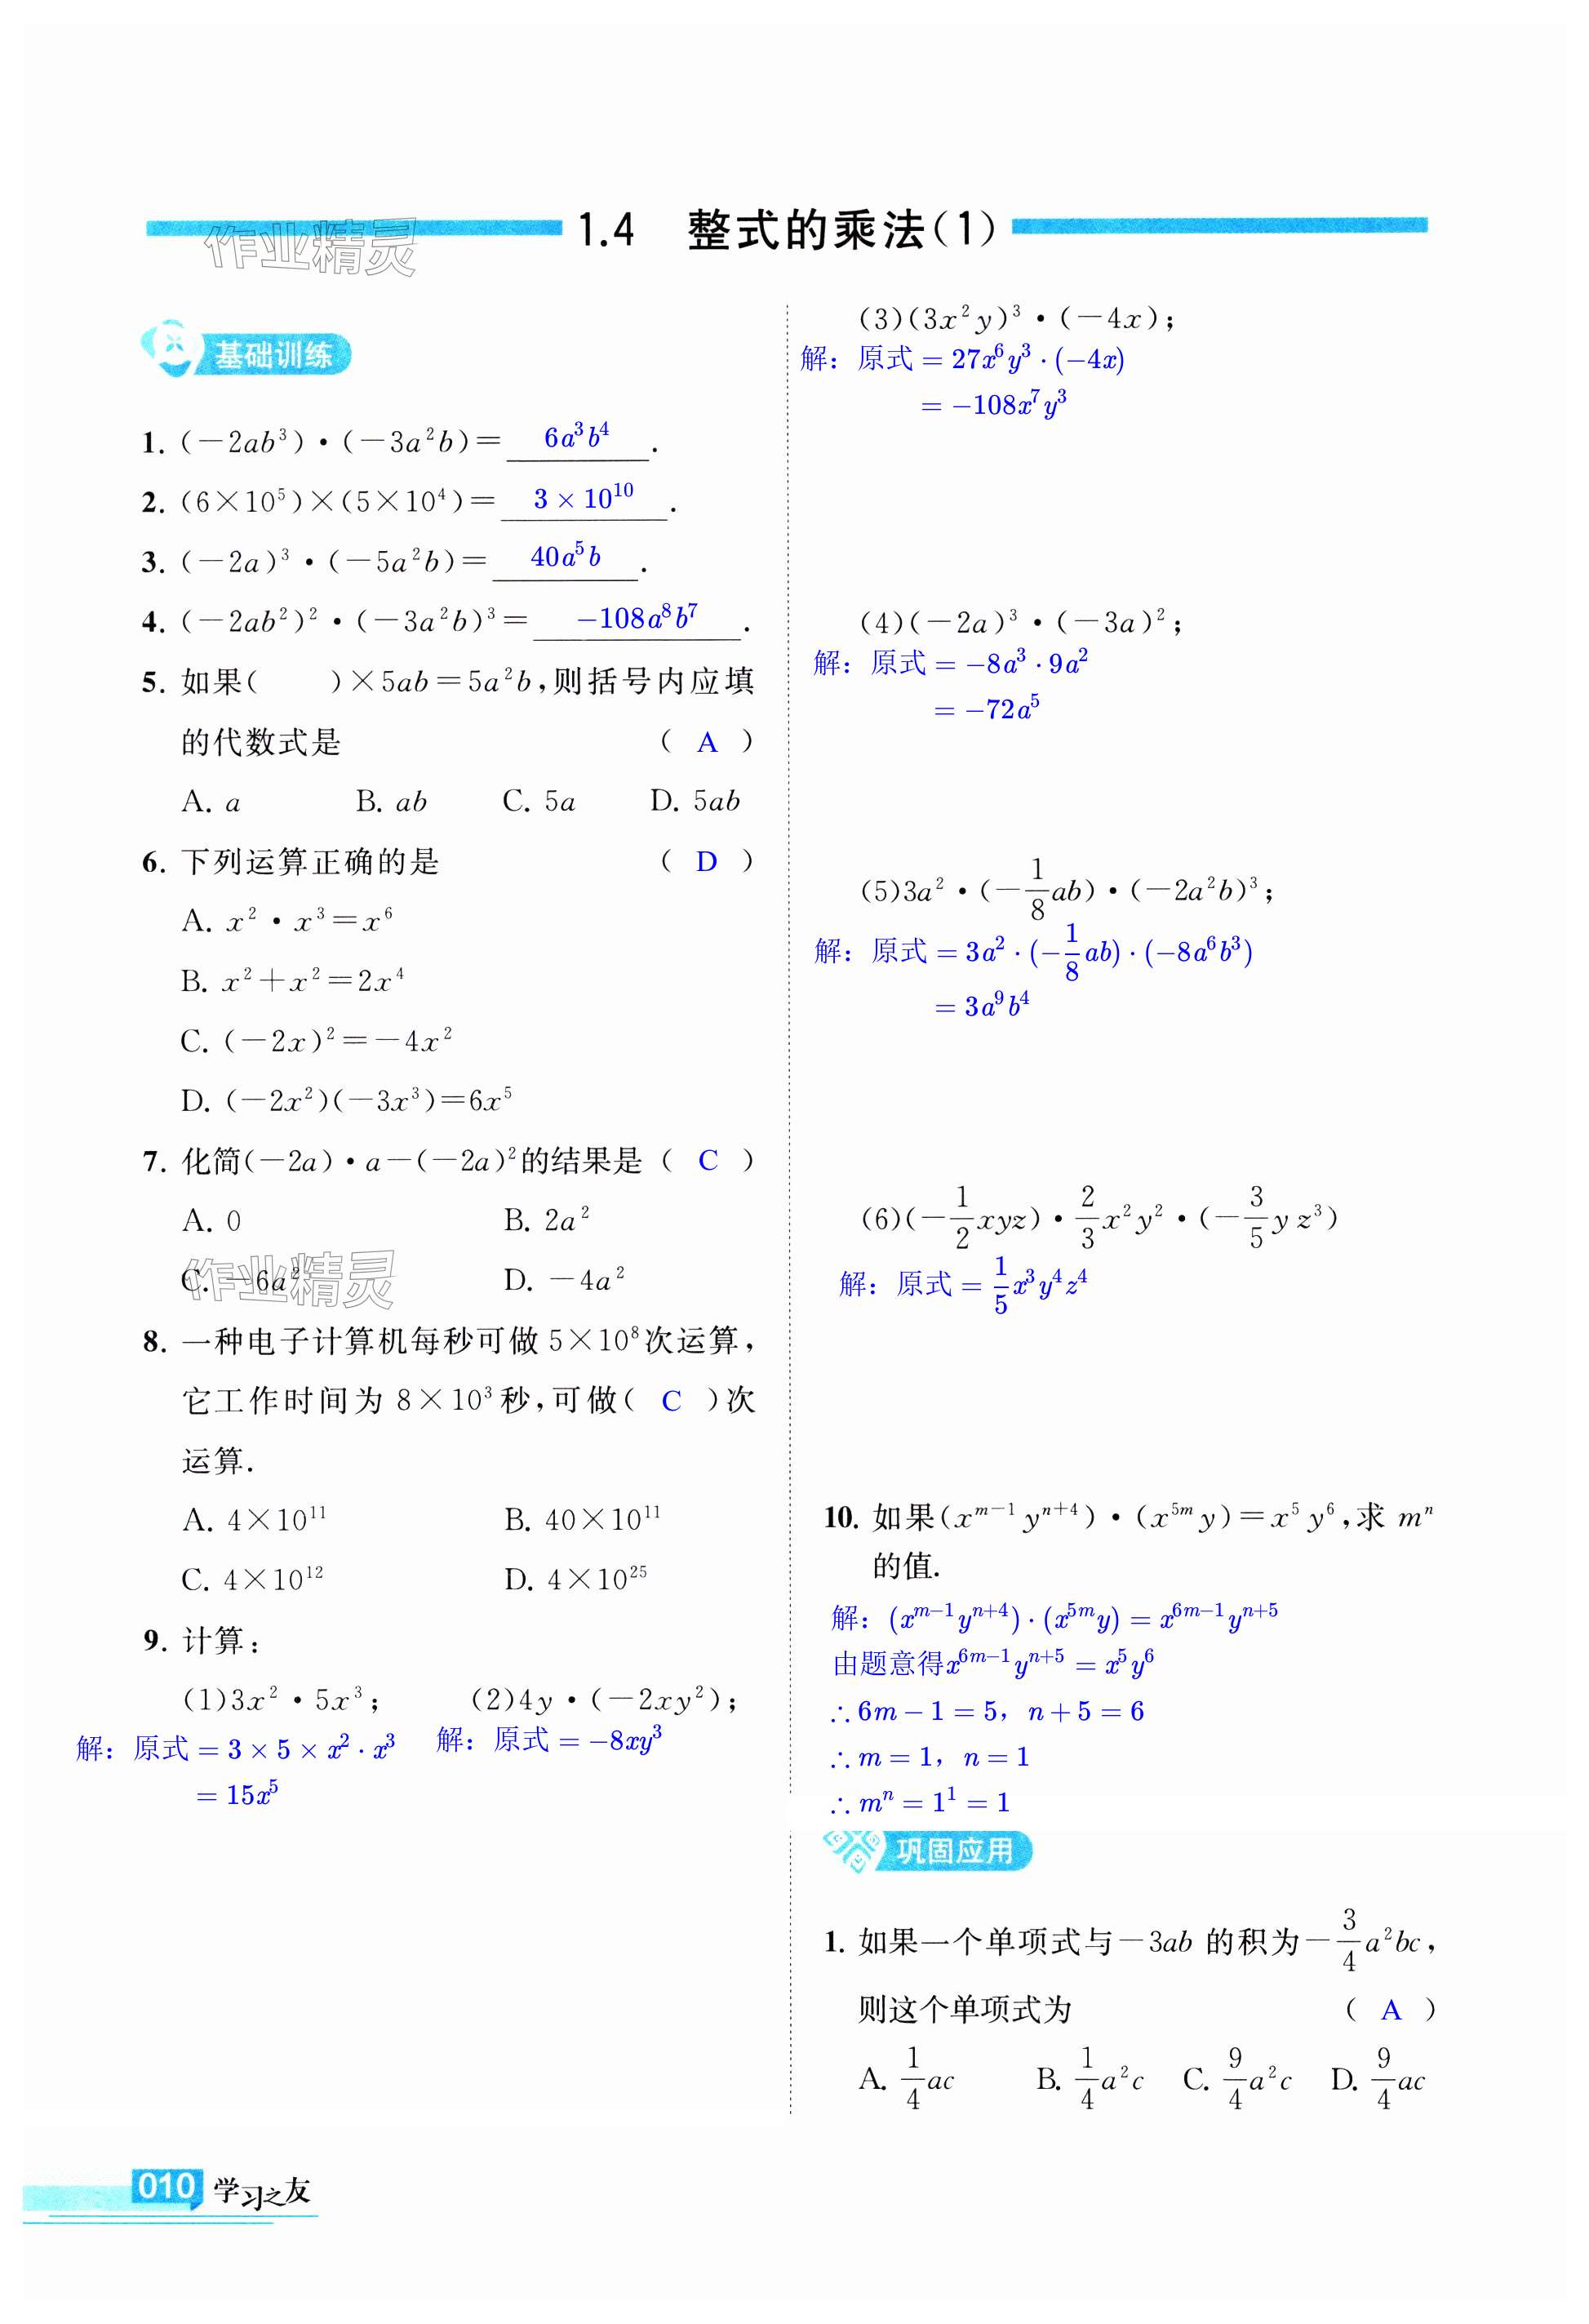 1.4 整式的乘法(1)
作业精灵
基础训练
1. (－2ab³)·(－3a²b)＝ 6a³b⁴ .
2. (6×10⁵)×(5×10⁴)＝ 3×10¹⁰ .
3. (－2a)³·(－5a²b)＝ 40a⁵b .
4. (－2ab²)²·(－3a²b)³＝ －108a⁸b⁷ .
5. 如果(　　)×5ab＝5a²b,则括号内应填
的代数式是 ( A )
A. a B. ab C. 5a D. 5ab
6. 下列运算正确的是 ( D )
A. x²·x³＝x⁶
B. x²＋x²＝2x⁴
C. (－2x)²＝－4x²
D. (－2x²)(－3x³)＝6x⁵
7. 化简(－2a)·a－(－2a)²的结果是 ( C )
A. 0 B. 2a²
C. －6a² D. －4a²
作业精灵
8. 一种电子计算机每秒可做 5×10⁸次运算,
它工作时间为 8×10³秒,可做( C )次
运算.
A. 4×10¹¹ B. 40×10¹¹
C. 4×10¹² D. 4×10²⁵
9. 计算:
(1)3x²·5x³; (2)4y·(－2xy²);
解：原式＝3×5×x²·x³ 解：原式＝－8xy³
＝15x⁵
(3)(3x²y)³·(－4x);
解：原式＝27x⁶y³·(－4x)
＝－108x⁷y³
(4)(－2a)³·(－3a)²;
解：原式＝－8a³·9a²
＝－72a⁵
(5)3a²·(－1/8ab)·(－2a²b)³;
解：原式＝3a²·(－1/8ab)·(－8a⁶b³)
＝3a⁹b⁴
(6)(－1/2xyz)·2/3x²y²·(－3/5yz³)
解：原式＝1/5x³y⁴z⁴
10. 如果(xᵐ⁻¹yⁿ⁺⁴)·(x⁵ᵐy)＝x⁵y⁶,求 mⁿ
的值.
解：(xᵐ⁻¹yⁿ⁺⁴)·(x⁵ᵐy)＝x⁶ᵐ⁻¹yⁿ⁺⁵
由题意得x⁶ᵐ⁻¹yⁿ⁺⁵＝x⁵y⁶
∴6m－1＝5，n＋5＝6
∴m＝1，n＝1
∴mⁿ＝1¹＝1
巩固应用
1. 如果一个单项式与－3ab 的积为－3/4a²bc,
则这个单项式为 ( A )
A. 1/4ac B. 1/4a²c C. 9/4a²c D. 9/4ac
010 学习之友